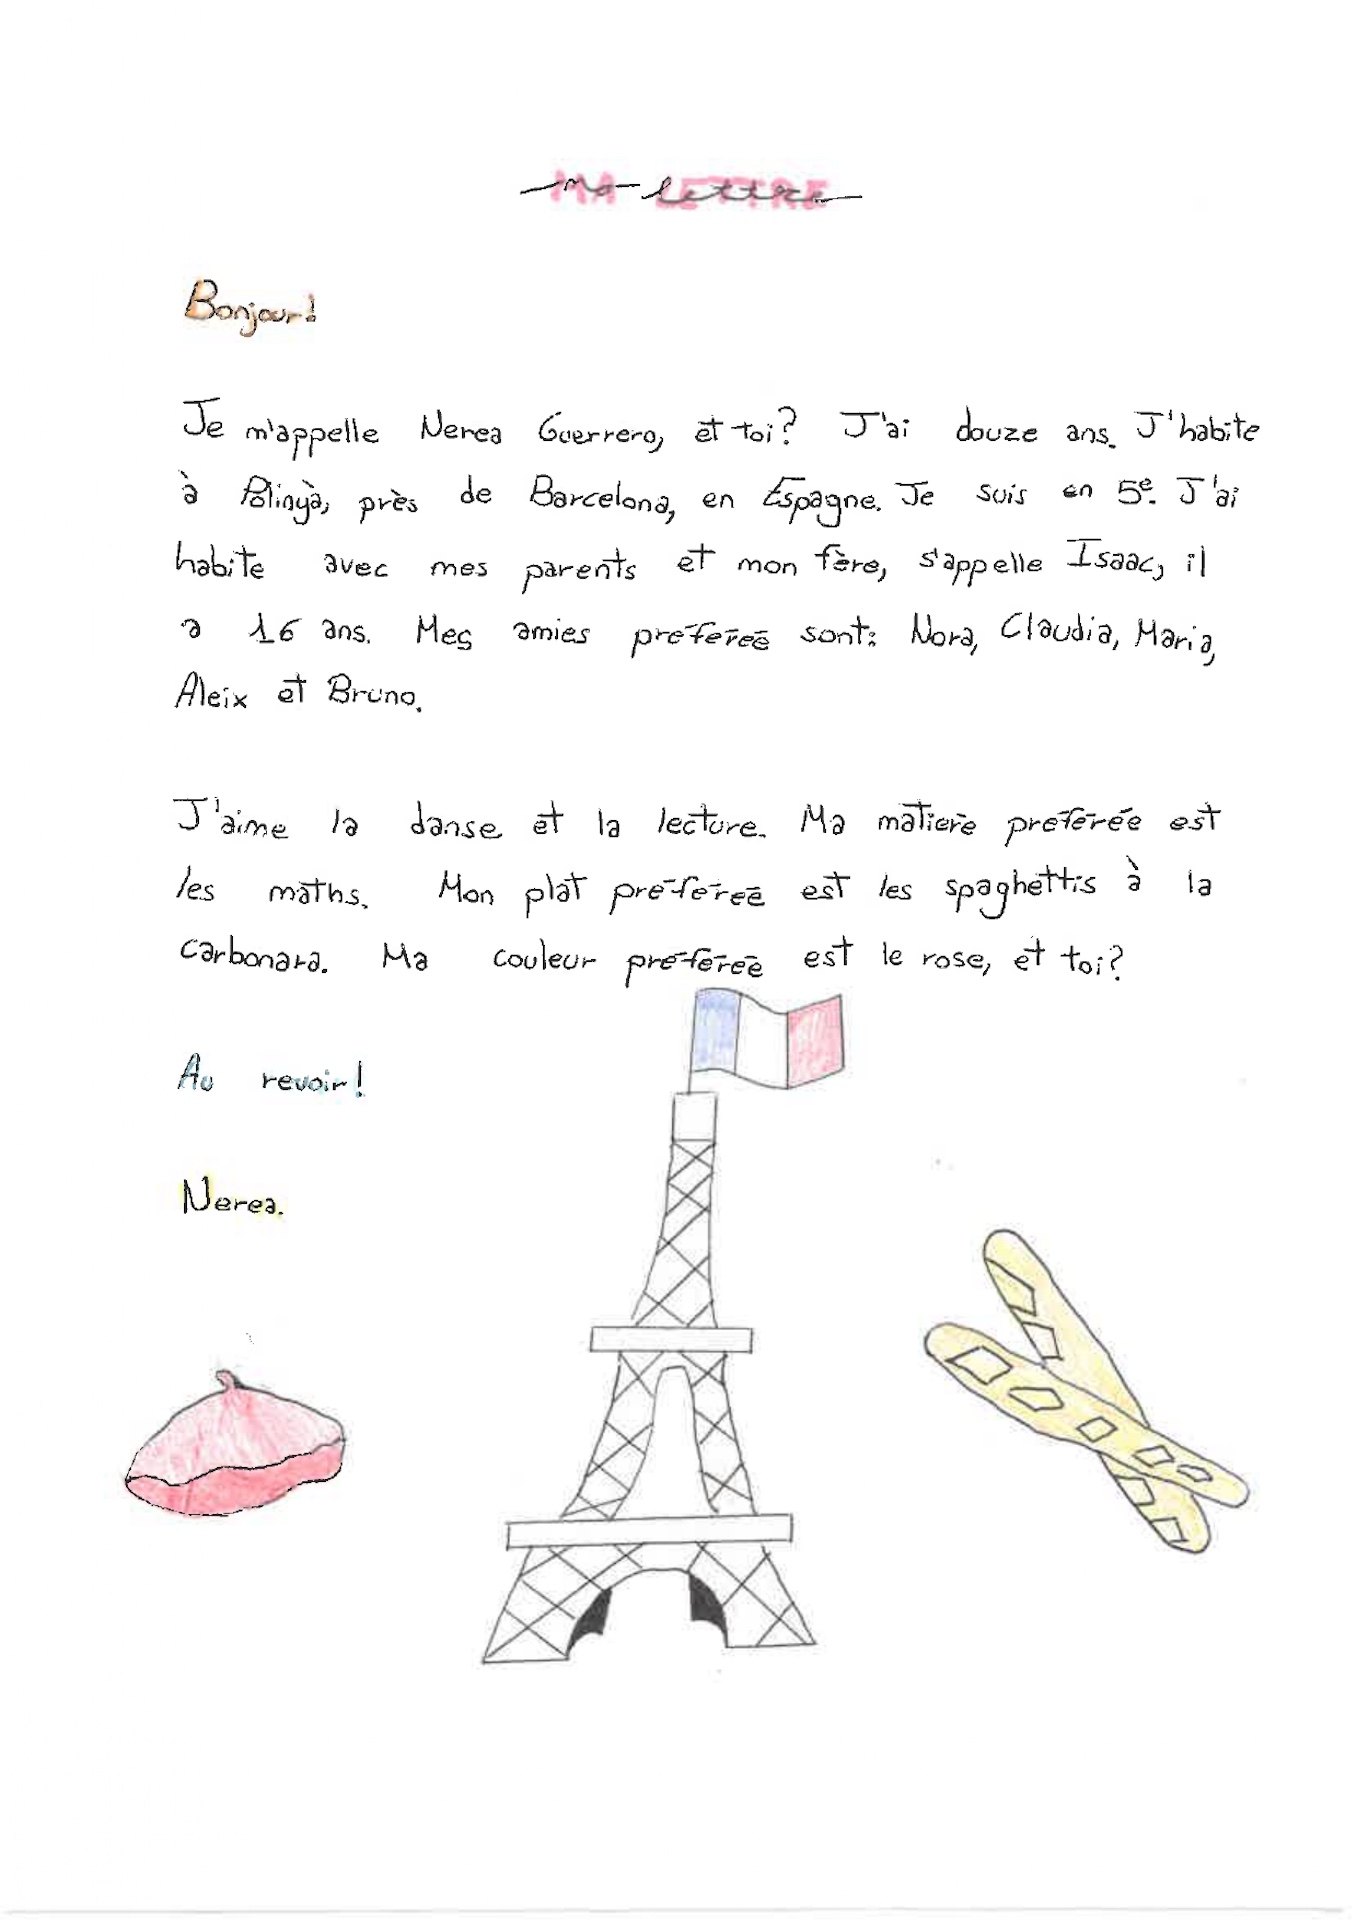 Ma lettre
Bonjour!
Je m'appelle Nerea Guerrero, et toi? J'ai douze ans. J'habite
à Polinyà, près de Barcelona, en Espagne. Je suis en 5e. J'ai
habite avec mes parents et mon fère, s'appelle Isaac, il
a 16 ans. Mes amies préférée sont: Nora, Claudia, Maria,
Aleix et Bruno.
J'aime la danse et la lecture. Ma matière préférée est
les maths. Mon plat préférée est les spaghettis à la
carbonara. Ma couleur préférée est le rose, et toi?
Au revoir!
Nerea.